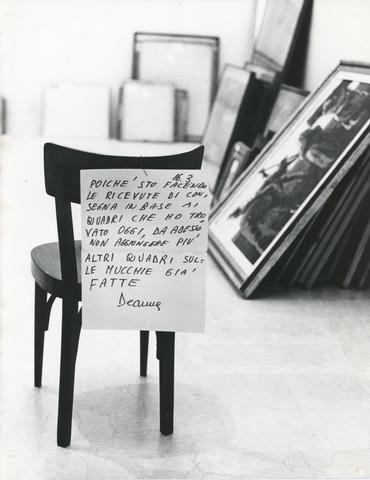 16.3
POICHE' STO FACENDO
LE RICEVUTE DI CON,
SEGNA IN BASE AI
QUADRI CHE HO TRO,
VATO OGGI, DA ADESSO
NON AGGIUNGERE PIU'
ALTRI QUADRI SUL,
LE MUCCHIE GIA'
FATTE
Deanna